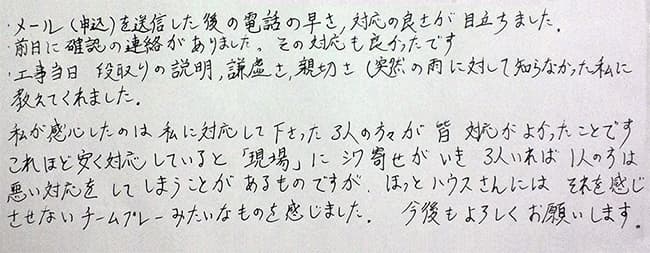 ・メール(申込)を送信した後の電話の早さ,対応の良さが目立ちました.
・前日に確認の連絡がありました。その対応も良かったです
・工事当日 段取りの説明,謙虚さ,親切さ(突然の雨に対して知らなかった私に
教えてくれました.
私が感心したのは 私に対応して下さった3人の方々が皆 対応がよかったことです
これほど安く対応していると「現場」にシワ寄せがいき 3人いれば 1人の方は
悪い対応をしてしまうことがあるものですが. ほっとハウスさんには それを感じ
させないチームプレーみたいなものを感じました. 今後もよろしくお願いします.